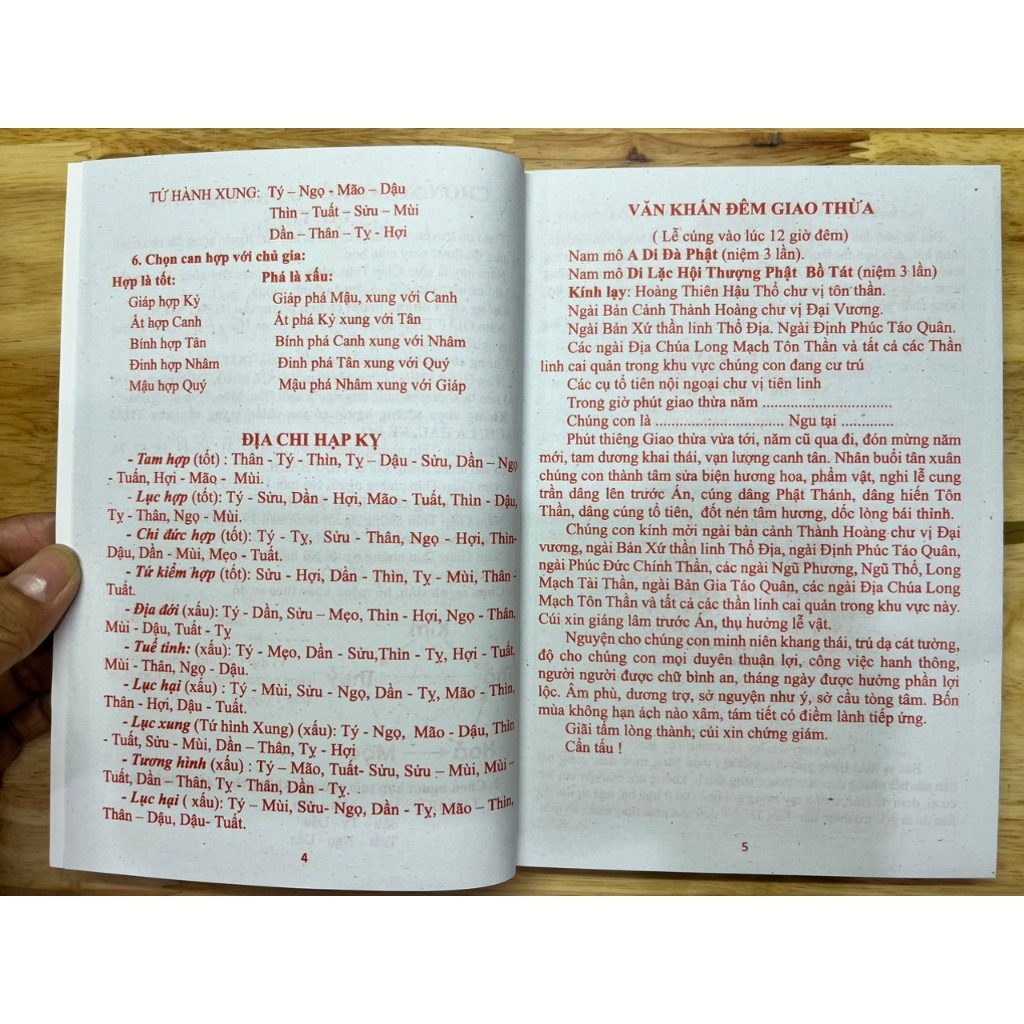 TỨ HÀNH XUNG: Tý – Ngọ - Mão – Dậu
Thìn – Tuất – Sửu – Mùi
Dần – Thân – Tỵ - Hợi
6. Chọn can hợp với chủ gia:
Hợp là tốt: Phá là xấu:
Giáp hợp Kỷ Giáp phá Mậu, xung với Canh
Ất hợp Canh Ất phá Kỷ xung với Tân
Bính hợp Tân Bính phá Canh xung với Nhâm
Đinh hợp Nhâm Đinh phá Tân xung với Quý
Mậu hợp Quý Mậu phá Nhâm xung với Giáp
ĐỊA CHI HẠP KỴ
- Tam hợp (tốt) : Thân - Tý - Thìn, Tỵ – Dậu - Sửu, Dần – Ngọ
- Tuấn, Hợi - Mão - Mùi.
- Lục hợp (tốt): Tý - Sửu, Dần - Hợi, Mão - Tuất, Thìn - Dậu,
Tỵ - Thân, Ngọ - Mùi.
- Chi đức hợp (tốt): Tý - Tỵ, Sửu - Thân, Ngọ - Hợi, Thìn-
Dậu, Dần - Mùi, Mẹo - Tuất.
- Tứ kiểm hợp (tốt): Sửu - Hợi, Dần - Thìn, Tỵ - Mùi, Thân -
Tuất.
- Địa đới (xấu): Tý - Dần, Sửu – Mẹo, Thìn - Hợi, Ngọ - Thân,
Mùi - Dậu, Tuất - Tỵ
- Tuế tinh: (xấu): Tý - Mẹo, Dần - Sửu,Thìn - Tỵ, Hợi - Tuất,
Mùi - Thân, Ngọ - Dậu.
- Lục hại (xấu) : Tý - Mùi, Sửu - Ngọ, Dần - Tỵ, Mão - Thìn,
Thân - Hợi, Dậu - Tuất.
- Lục xung (Tứ hình Xung) (xấu): Tý - Ngọ, Mão - Dậu, Thìn
- Tuất, Sửu - Mùi, Dần – Thân, Tỵ - Hợi
- Tương hình (xấu) : Tý – Mão, Tuất- Sửu, Sửu – Mùi, Mùi –
Tuất, Dần – Thân, Tỵ - Thân, Dần - Tỵ.
- Lục hại ( xấu): Tý – Mùi, Sửu- Ngọ, Dần - Tỵ, Mão – Thìn,
Thân – Dậu, Dậu- Tuất.
4
VĂN KHẤN ĐÊM GIAO THỪA
( Lễ cúng vào lúc 12 giờ đêm)
Nam mô A Di Đà Phật (niệm 3 lần).
Nam mô Di Lặc Hội Thượng Phật Bồ Tát (niệm 3 lần)
Kính lạy: Hoàng Thiên Hậu Thổ chư vị tôn thần.
Ngài Bản Cảnh Thành Hoàng chư vị Đại Vương.
Ngài Bản Xứ thần linh Thổ Địa. Ngài Định Phúc Táo Quân.
Các ngài Địa Chúa Long Mạch Tôn Thần và tất cả các Thần
linh cai quản trong khu vực chúng con đang cư trú
Các cụ tổ tiên nội ngoại chư vị tiên linh
Trong giờ phút giao thừa năm ................................
Chúng con là ................................ Ngu tại .............
Phút thiêng Giao thừa vừa tới, năm cũ qua đi, đón mừng năm
mới, tạm dương khai thái, vạn lượng canh tân. Nhân buổi tân xuân
chúng con thành tâm sửa biện hương hoa, phẩm vật, nghi lễ cung
trần dâng lên trước Án, cúng dâng Phật Thánh, dâng hiến Tôn
Thần, dâng cúng tổ tiên, đốt nén tâm hương, dốc lòng bái thỉnh.
Chúng con kính mời ngài bản cảnh Thành Hoàng chư vị Đại
vương, ngài Bản Xứ thần linh Thổ Địa, ngài Định Phúc Táo Quân,
ngài Phúc Đức Chính Thần, các ngài Ngũ Phương, Ngũ Thổ, Long
Mạch Tài Thần, ngài Bản Gia Táo Quân, các ngài Địa Chúa Long
Mạch Tôn Thần và tất cả các thần linh cai quản trong khu vực này.
Cúi xin giáng lâm trước Án, thụ hưởng lễ vật.
Nguyện cho chúng con minh niên khang thái, trú dạ cát tường,
độ cho chúng con mọi duyên thuận lợi, công việc hanh thông,
người người được chữ bình an, tháng ngày được hưởng phần lợi
lộc. Âm phù, dương trợ, sở nguyện như ý, sở cầu tòng tâm. Bốn
mùa không hạn ách nào xâm, tám tiết có điềm lành tiếp ứng.
Giãi tấm lòng thành, cúi xin chứng giám.
Cẩn tấu !
5